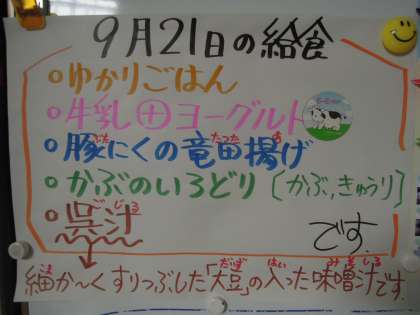 9月21日の給食
○ゆかりごはん
○牛乳㊉ヨーグルト
○豚にくの竜田揚げ
○かぶのいろどり〔かぶ,きゅうり〕
○呉汁
です。
細か〜くすりつぶした「大豆」の入った味噌汁です